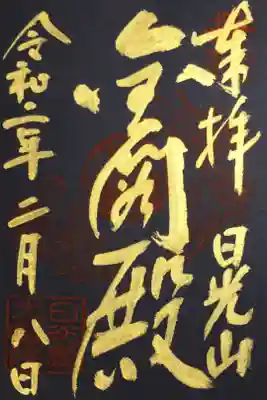 奉拝 日光山
金閣殿
令和二年二月八日